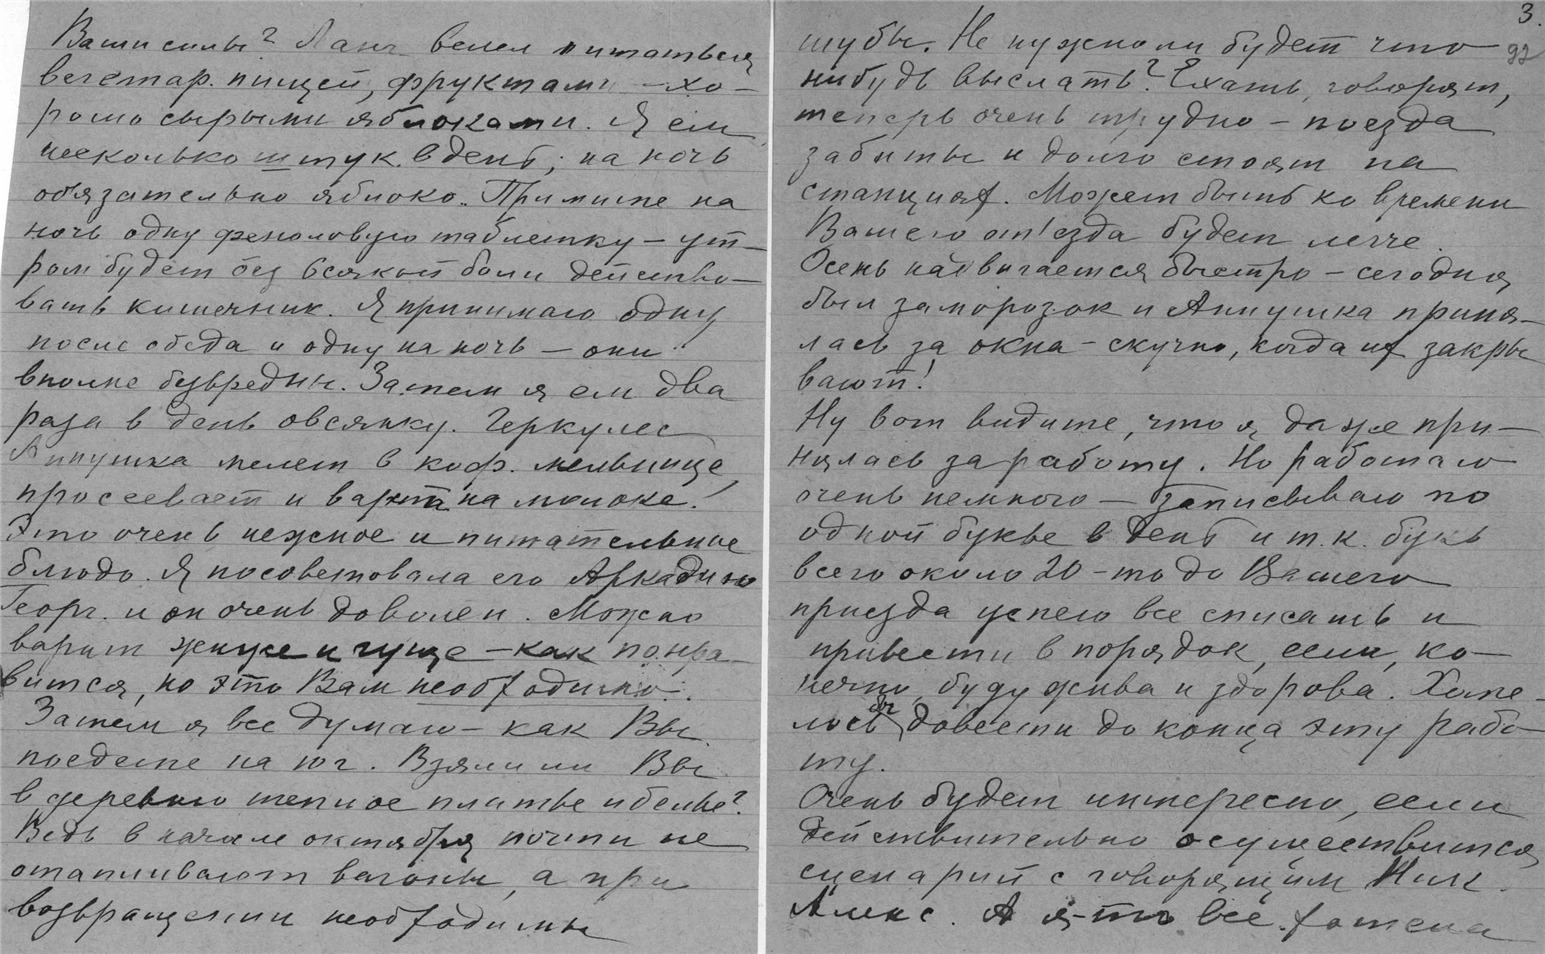 Ваши силы? Ланг велел питаться
вегетар. пищей, фруктами – хо-
рошо сырыми яблоками. Я ем
несколько штук в день; на ночь
обязательно яблоко. Примите на
ночь одну феноловую таблетку – ут-
ром будет без всякой боли действо-
вать кишечник. Я принимаю одну
после обеда и одну на ночь – они
вполне безвредны. Затем я ем два
раза в день овсянку. Геркулес
Аннушка мелет в коф. мельнице,
просеевает и варит на молоке!
Это очень нежное и питательное
блюдо. Я посоветовала его Аркадию
Георг. и он очень доволен. Можно
варить жиже и гуще – как понра-
вится, но это Вам необходимо.
Затем я все думаю – как Вы
поедете на юг. Взяли ли Вы
в деревню теплое платье и белье?
Ведь в начале октября почти не
отапливают вагоны, а при
возвращении необходимы
3.
92
шубы. Не нужно ли будет что
нибудь выслать? Ехать, говорят,
теперь очень трудно – поезда
забиты и долго стоят на
станциях. Может быть ко времени
Вашего от'езда будет легче.
Осень надвигается быстро – сегодня
был заморозок и Аннушка приня-
лась за окна – скучно, когда их закры
вают!
Ну вот видите, что я даже при-
нялась за работу. Но работаю
очень немного – записываю по
одной букве в день и т.к. букв
всего около 20 – то до Вашего
приезда успею все списать и
привести в порядок, если, ко-
нечно, буду жива и здорова. Хоте-
лось бы довести до конца эту рабо-
ту.
Очень будет интересно, если
действительно осуществится
сценарий с говорящим Ник.
Алекс. А я-то всё хотела